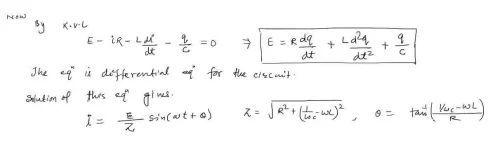 Now
By K.V.L
E - iR - L di/dt - q/c = 0 ⇒ E = R dq/dt + L d²q/dt² + q/c
The eqⁿ is differential eqⁿ for the circuit.
Solution of this eqⁿ gives.
i = E/Z sin(ωt + θ) Z = √(R² + (1/ωc - ωL)²) , θ = tan⁻¹((1/ωc - ωL)/R)